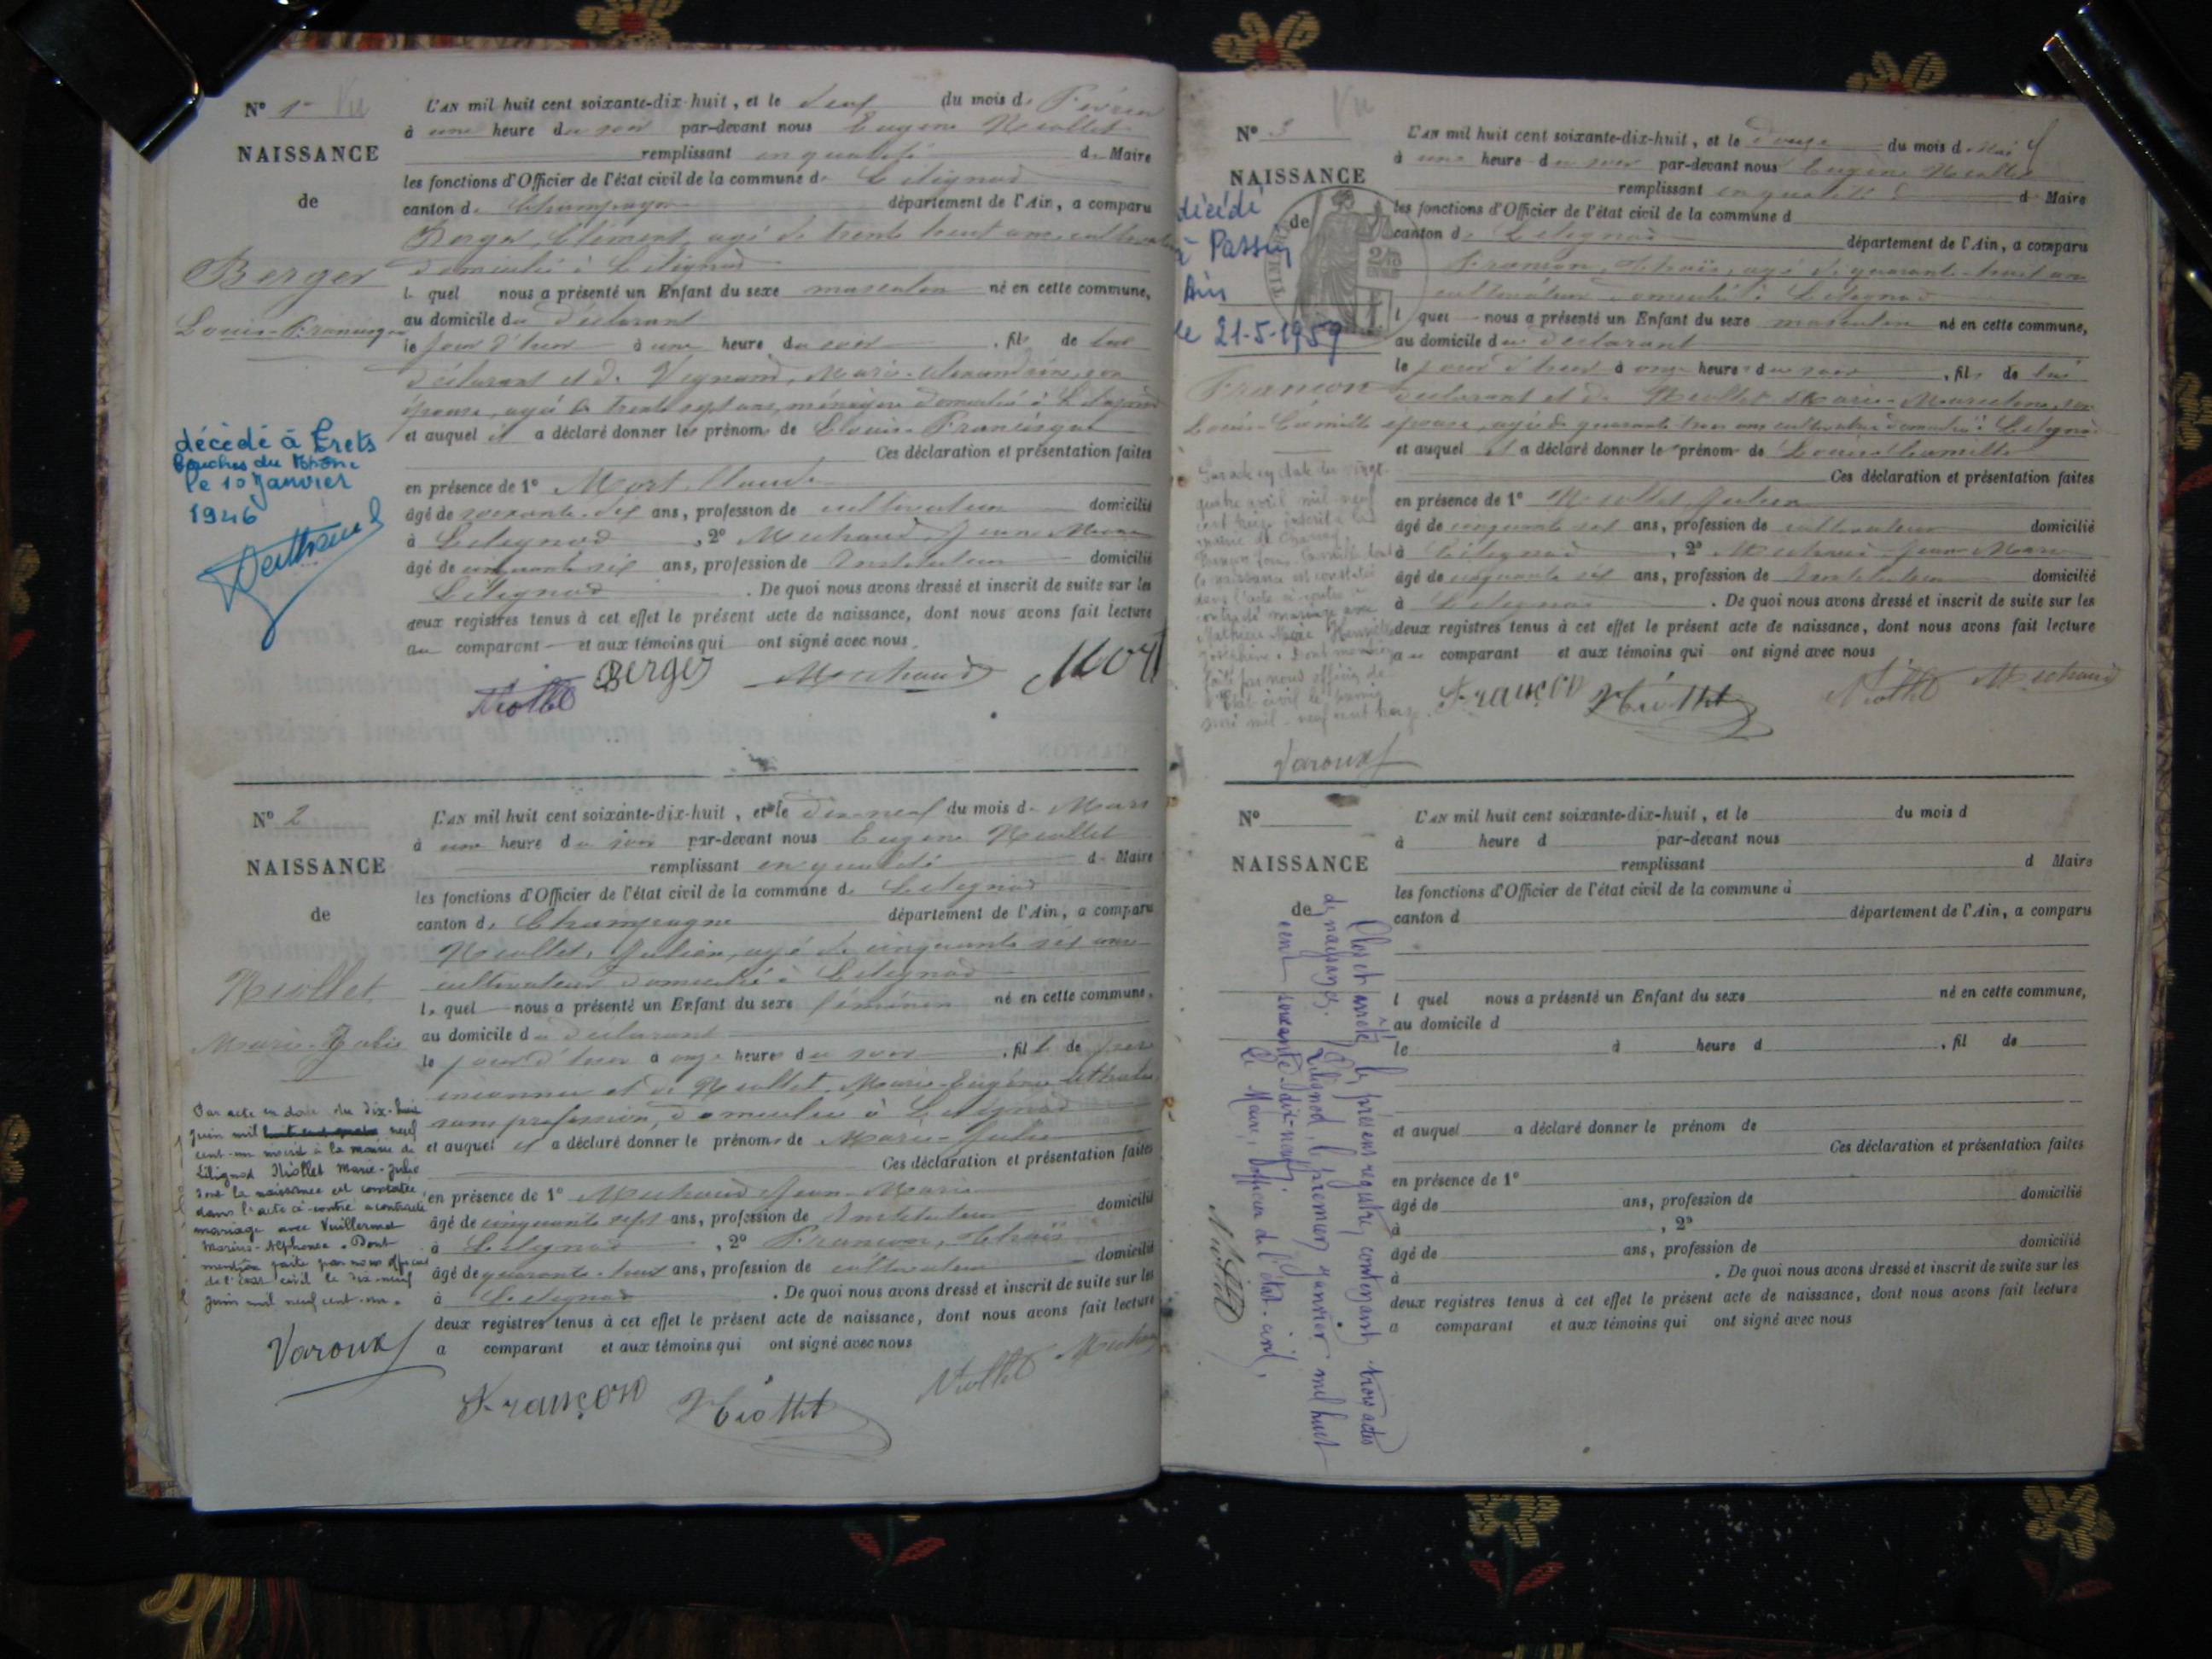 N° 1 Vu
NAISSANCE
de
Berger
Louis-Francisque
décédé à Trets
Bouches du Rhône
le 10 Janvier
1946
L'AN mil huit cent soixante-dix-huit, et le neuf du mois de Février
à une heure du soir par-devant nous Eugène Niollet
remplissant en qualité de Maire
les fonctions d'Officier de l'état civil de la commune de Lilignod
canton de Champagne département de l'Ain, a comparu
Berger, Clément, agé de trente huit ans, cultivateur
domicilié à Lilignod
lequel nous a présenté un Enfant du sexe masculin né en cette commune,
au domicile du déclarant
le jour d'hier à une heure du soir, fils de lui
déclarant et de Marie son
épouse, agée de trente sept ans, ménagère domiciliée à Lilignod
et auquel il a déclaré donner les prénoms de Louis-Francisque
Ces déclaration et présentation faites
en présence de 1° Mort Claude
âgé de soixante-dix ans, profession de cultivateur domicilié
à Lilignod, 2° Michaud Jean Marie
âgé de cinquante six ans, profession de Instituteur domicilié
Lilignod. De quoi nous avons dressé et inscrit de suite sur les
deux registres tenus à cet effet le présent acte de naissance, dont nous avons fait lecture
au comparant et aux témoins qui ont signé avec nous.
Niollet Berger Michaud Mort
N° 2
NAISSANCE
de
Niollet
Marie-Julie
Par acte en date du dix-huit
juin mil huit cent neuf
cent-un inscrit à la mairie de
Lilignod Niollet Marie-Julie
dont la naissance est constatée
dans l'acte ci-contre a contracté
mariage avec Vuillermet
Marius-Alphonse. Dont
mention faite par nous officier
de l'Etat civil le dix-neuf
juin mil neuf cent-un.
Varoux
L'AN mil huit cent soixante-dix-huit, et le dix-neuf du mois de Mars
à une heure du soir par-devant nous Eugène Niollet
remplissant en qualité de Maire
les fonctions d'Officier de l'état civil de la commune de Lilignod
canton de Champagne département de l'Ain, a comparu
Niollet, Julien, agé de cinquante six ans
cultivateur domicilié à Lilignod
lequel nous a présenté un Enfant du sexe féminin né en cette commune,
au domicile du déclarant
le jour d'hier à onze heures du soir, fille de père
inconnu et de Niollet, Marie-Eugénie
sans profession, domiciliée à Lilignod
et auquel il a déclaré donner le prénoms de Marie-Julie
Ces déclaration et présentation faites
en présence de 1° Michaud Jean-Marie
âgé de cinquante sept ans, profession de Instituteur domicilié
à Lilignod, 2° Françon,
âgé de quarante-huit ans, profession de cultivateur domicilié
à Lilignod. De quoi nous avons dressé et inscrit de suite sur les
deux registres tenus à cet effet le présent acte de naissance, dont nous avons fait lecture
a comparant et aux témoins qui ont signé avec nous
Françon Niollet Niollet Michaud
N° 3 Vu
NAISSANCE
de
décédé
à Passin
Ain
le 21-5-1959
Françon
Louis-Camille
Par acte en date du vingt-
quatre avril mil neuf
dont la naissance est constatée
dans l'acte ci-contre a
contracté mariage avec
Joséphine. Dont mention
faite par nous officier de
l'Etat civil le
mai mil-neuf cent treize.
Varoux
L'AN mil huit cent soixante-dix-huit, et le douze du mois de Mai
à une heure du soir par-devant nous Eugène Niollet
remplissant en qualité de Maire
les fonctions d'Officier de l'état civil de la commune d
canton de Lilignod département de l'Ain, a comparu
Françon, agé de quarante-huit ans
cultivateur domicilié à Lilignod
lequel nous a présenté un Enfant du sexe masculin né en cette commune,
au domicile du déclarant
le jour d'hier à onze heures du soir, fils de lui
déclarant et de Niollet Marie son
épouse, agée de quarante trois ans cultivatrice domiciliée à Lilignod
et auquel il a déclaré donner le prénom de Louis-Camille
Ces déclaration et présentation faites
en présence de 1° Niollet Julien
âgé de cinquante six ans, profession de cultivateur domicilié
à Lilignod, 2° Michaud Jean Marie
âgé de cinquante six ans, profession de Instituteur domicilié
à Lilignod. De quoi nous avons dressé et inscrit de suite sur les
deux registres tenus à cet effet le présent acte de naissance, dont nous avons fait lecture
au comparant et aux témoins qui ont signé avec nous
Françon Niollet Niollet Michaud
N°
NAISSANCE
de
L'AN mil huit cent soixante-dix-huit, et le du mois d
à heure d par-devant nous
remplissant d Maire
les fonctions d'Officier de l'état civil de la commune d
canton d département de l'Ain, a comparu
l quel nous a présenté un Enfant du sexe né en cette commune,
au domicile d
le à heure d, fil de
et auquel a déclaré donner le prénom de
Ces déclaration et présentation faites
en présence de 1°
âgé de ans, profession de domicilié
à, 2°
âgé de ans, profession de domicilié
à. De quoi nous avons dressé et inscrit de suite sur les
deux registres tenus à cet effet le présent acte de naissance, dont nous avons fait lecture
a comparant et aux témoins qui ont signé avec nous
Clos et arrêté le présent registre contenant trois actes
de naissances. Lilignod, le premier janvier mil huit
cent soixante-dix-neuf.
Le Maire, Officier de l'état-civil,
Niollet